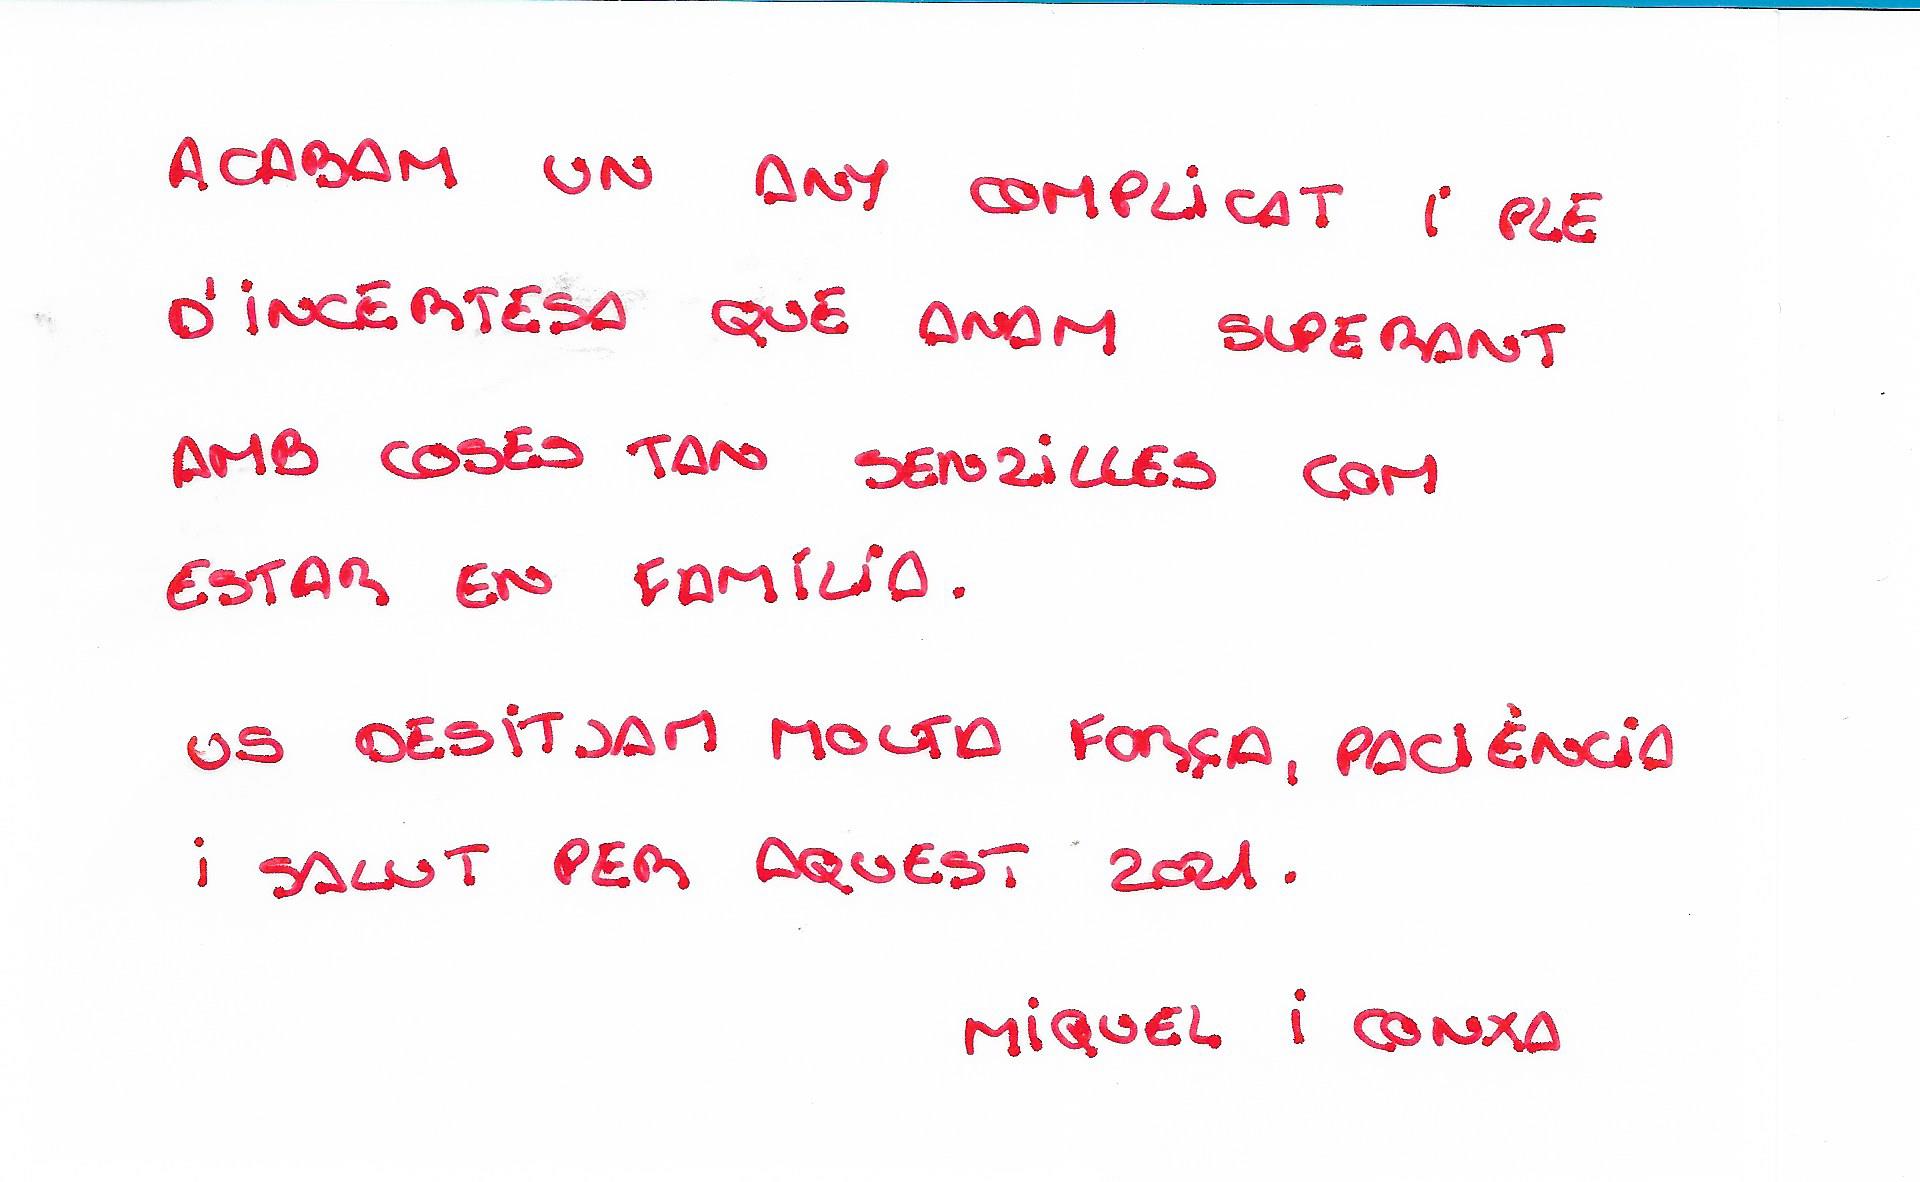 ACABAM UN ANY COMPLICAT I PLE
D'INCERTESA QUE ANAM SUPERANT
AMB COSES TAN SENZILLES COM
ESTAR EN FAMÍLIA.
US DESITJAM MOLTA FORÇA, PACIÈNCIA
I SALUT PER AQUEST 2021.
MIQUEL I CONXA